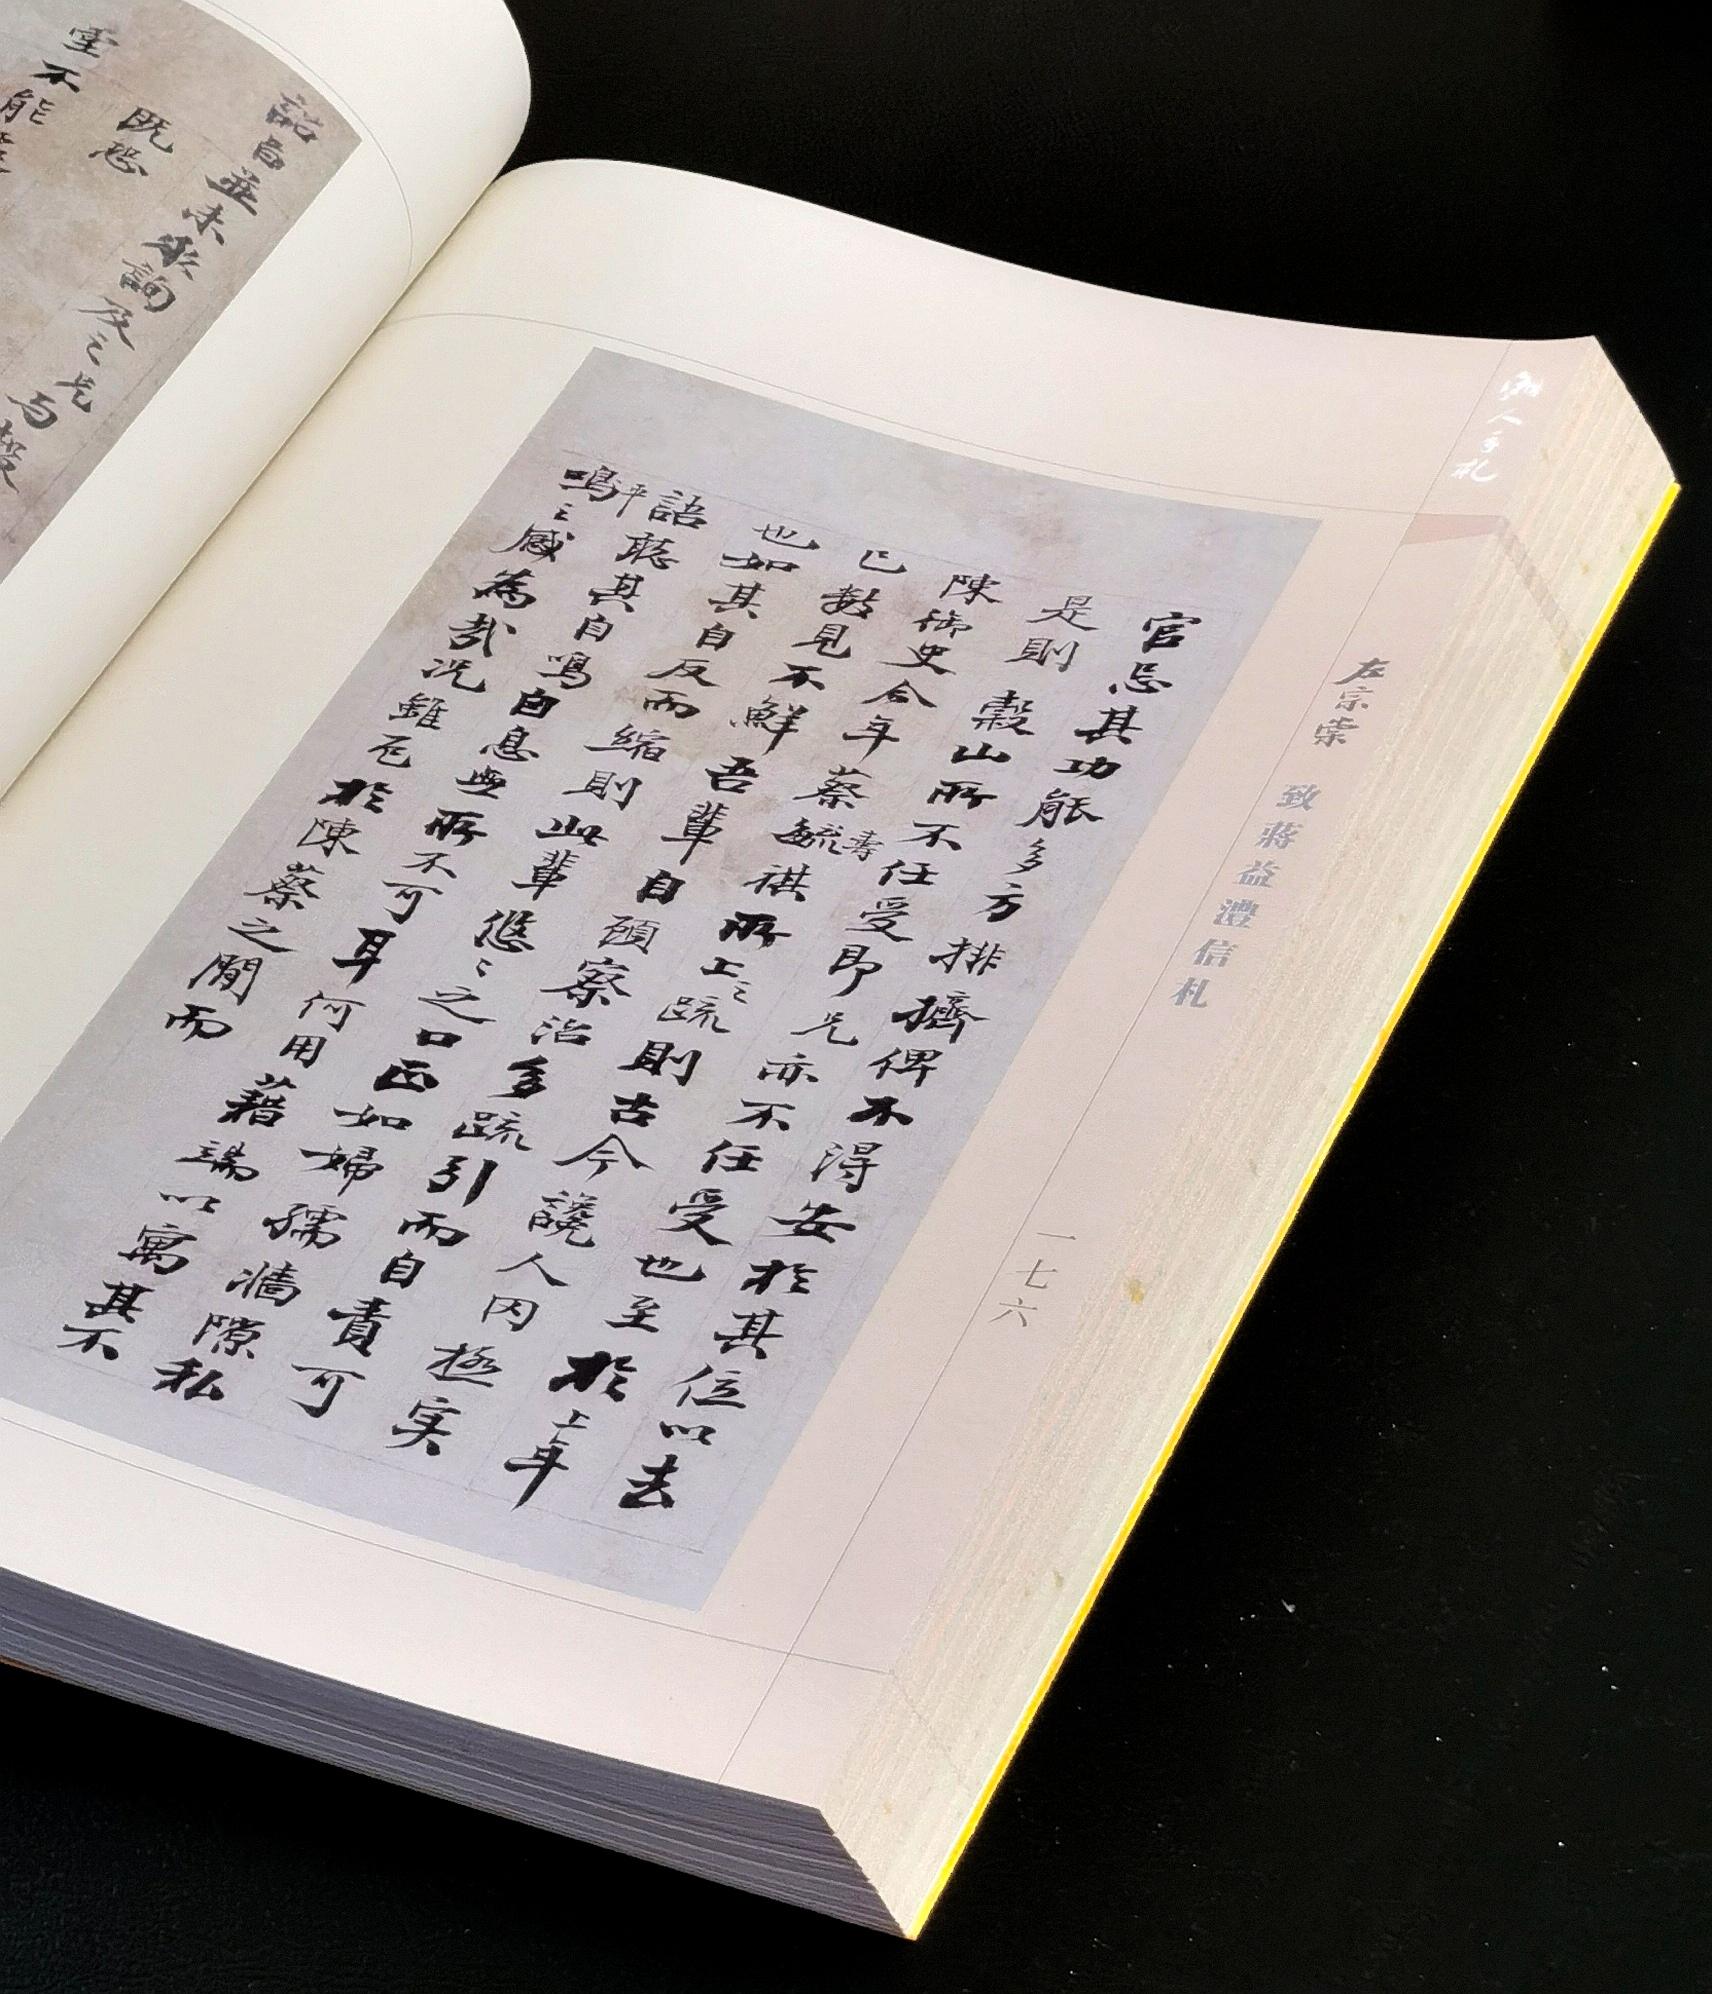 官忌其功能多方排擠俾不得安於其位以去
是則 穀山所不任受即兄亦不任受也至於上年
陳御史今年蔡毓壽祺所上之疏則古今讒人罔極实
已数見不鮮吾輩自顧察治多疏引而自責可
也如其自反而縮則此輩悠〻之口正如婦孺墻隙私
語聽其自鳴自息無所不可耳何用藉端以寓其不
平鳴之感為哉况雖厄於陳蔡之間而
人手札
左宗棠 致蔣益澧信札
一七六
詔旨並未詢及之兄与穀
既恐
不能